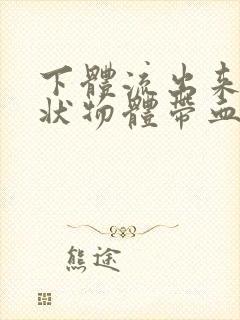 下體流出來
狀物體帶血
熊途